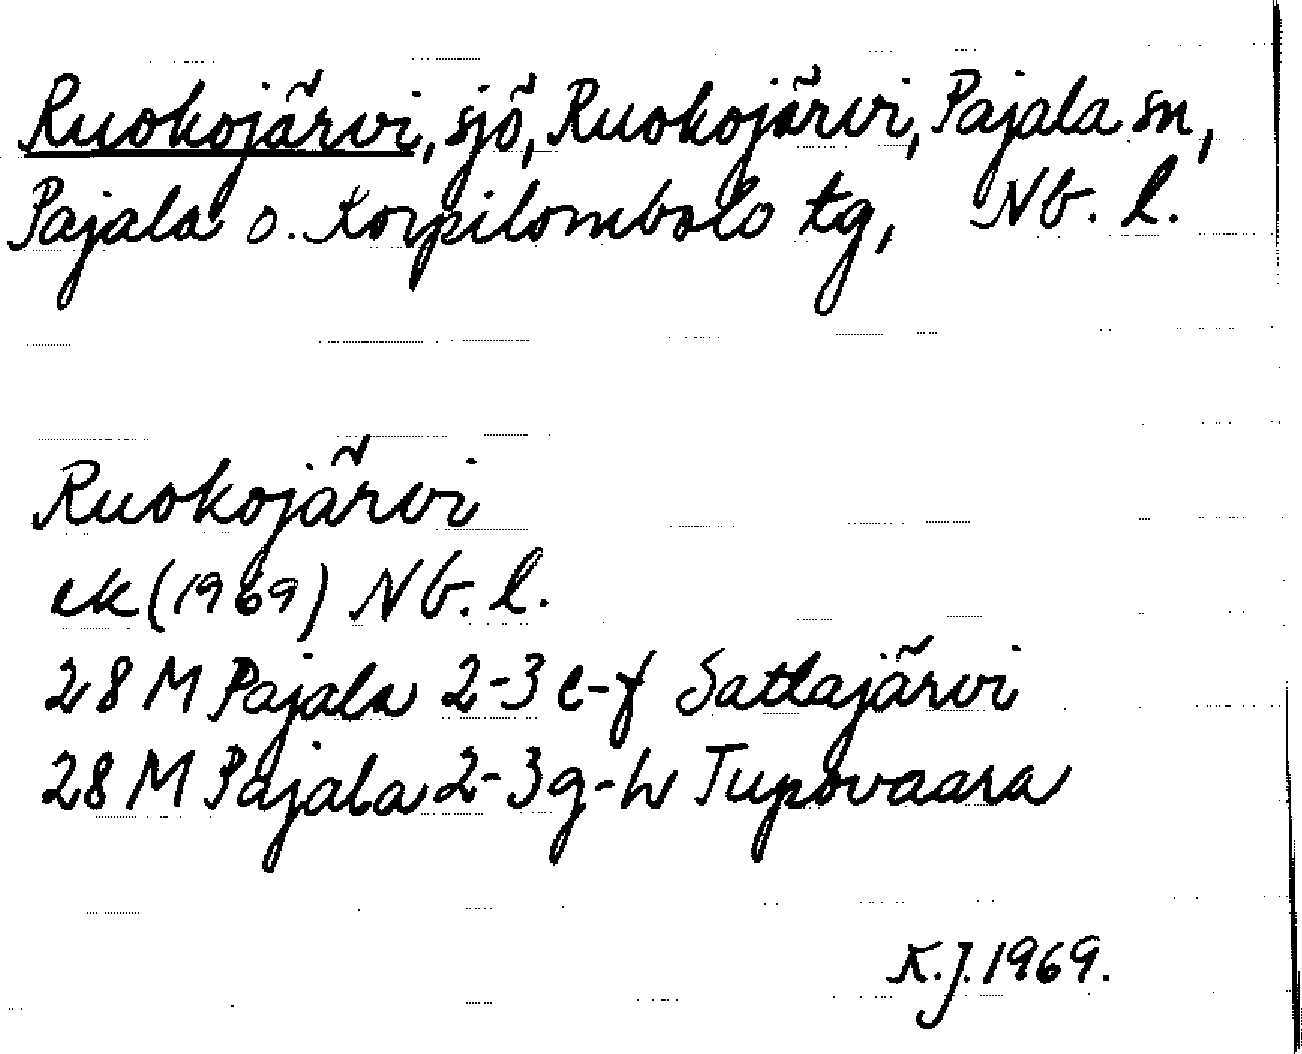 Ruokojärvi, sjö, Ruokojärvi, Pajala sn,
Pajala o. Korpilombolo tg, Nb. l.
Ruokojärvi
ek (1969) Nb. l.
28 M Pajala 2-3 e-f Sattajärvi
28 M Pajala 2-3 g-h Tupovaara
K.J. 1969.